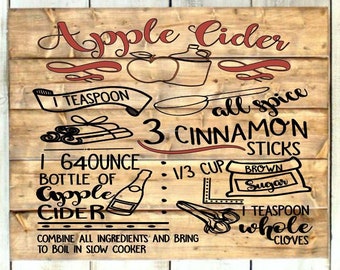 Apple Cider
1 TEASPOON
all spice
3 CINNAMON
STICKS
1 64OUNCE
BOTTLE OF
Apple
CIDER
1/3 CUP
BROWN
Sugar
1 TEASPOON
whole
CLOVES
COMBINE ALL INGREDIENTS AND BRING
TO BOIL IN SLOW COOKER